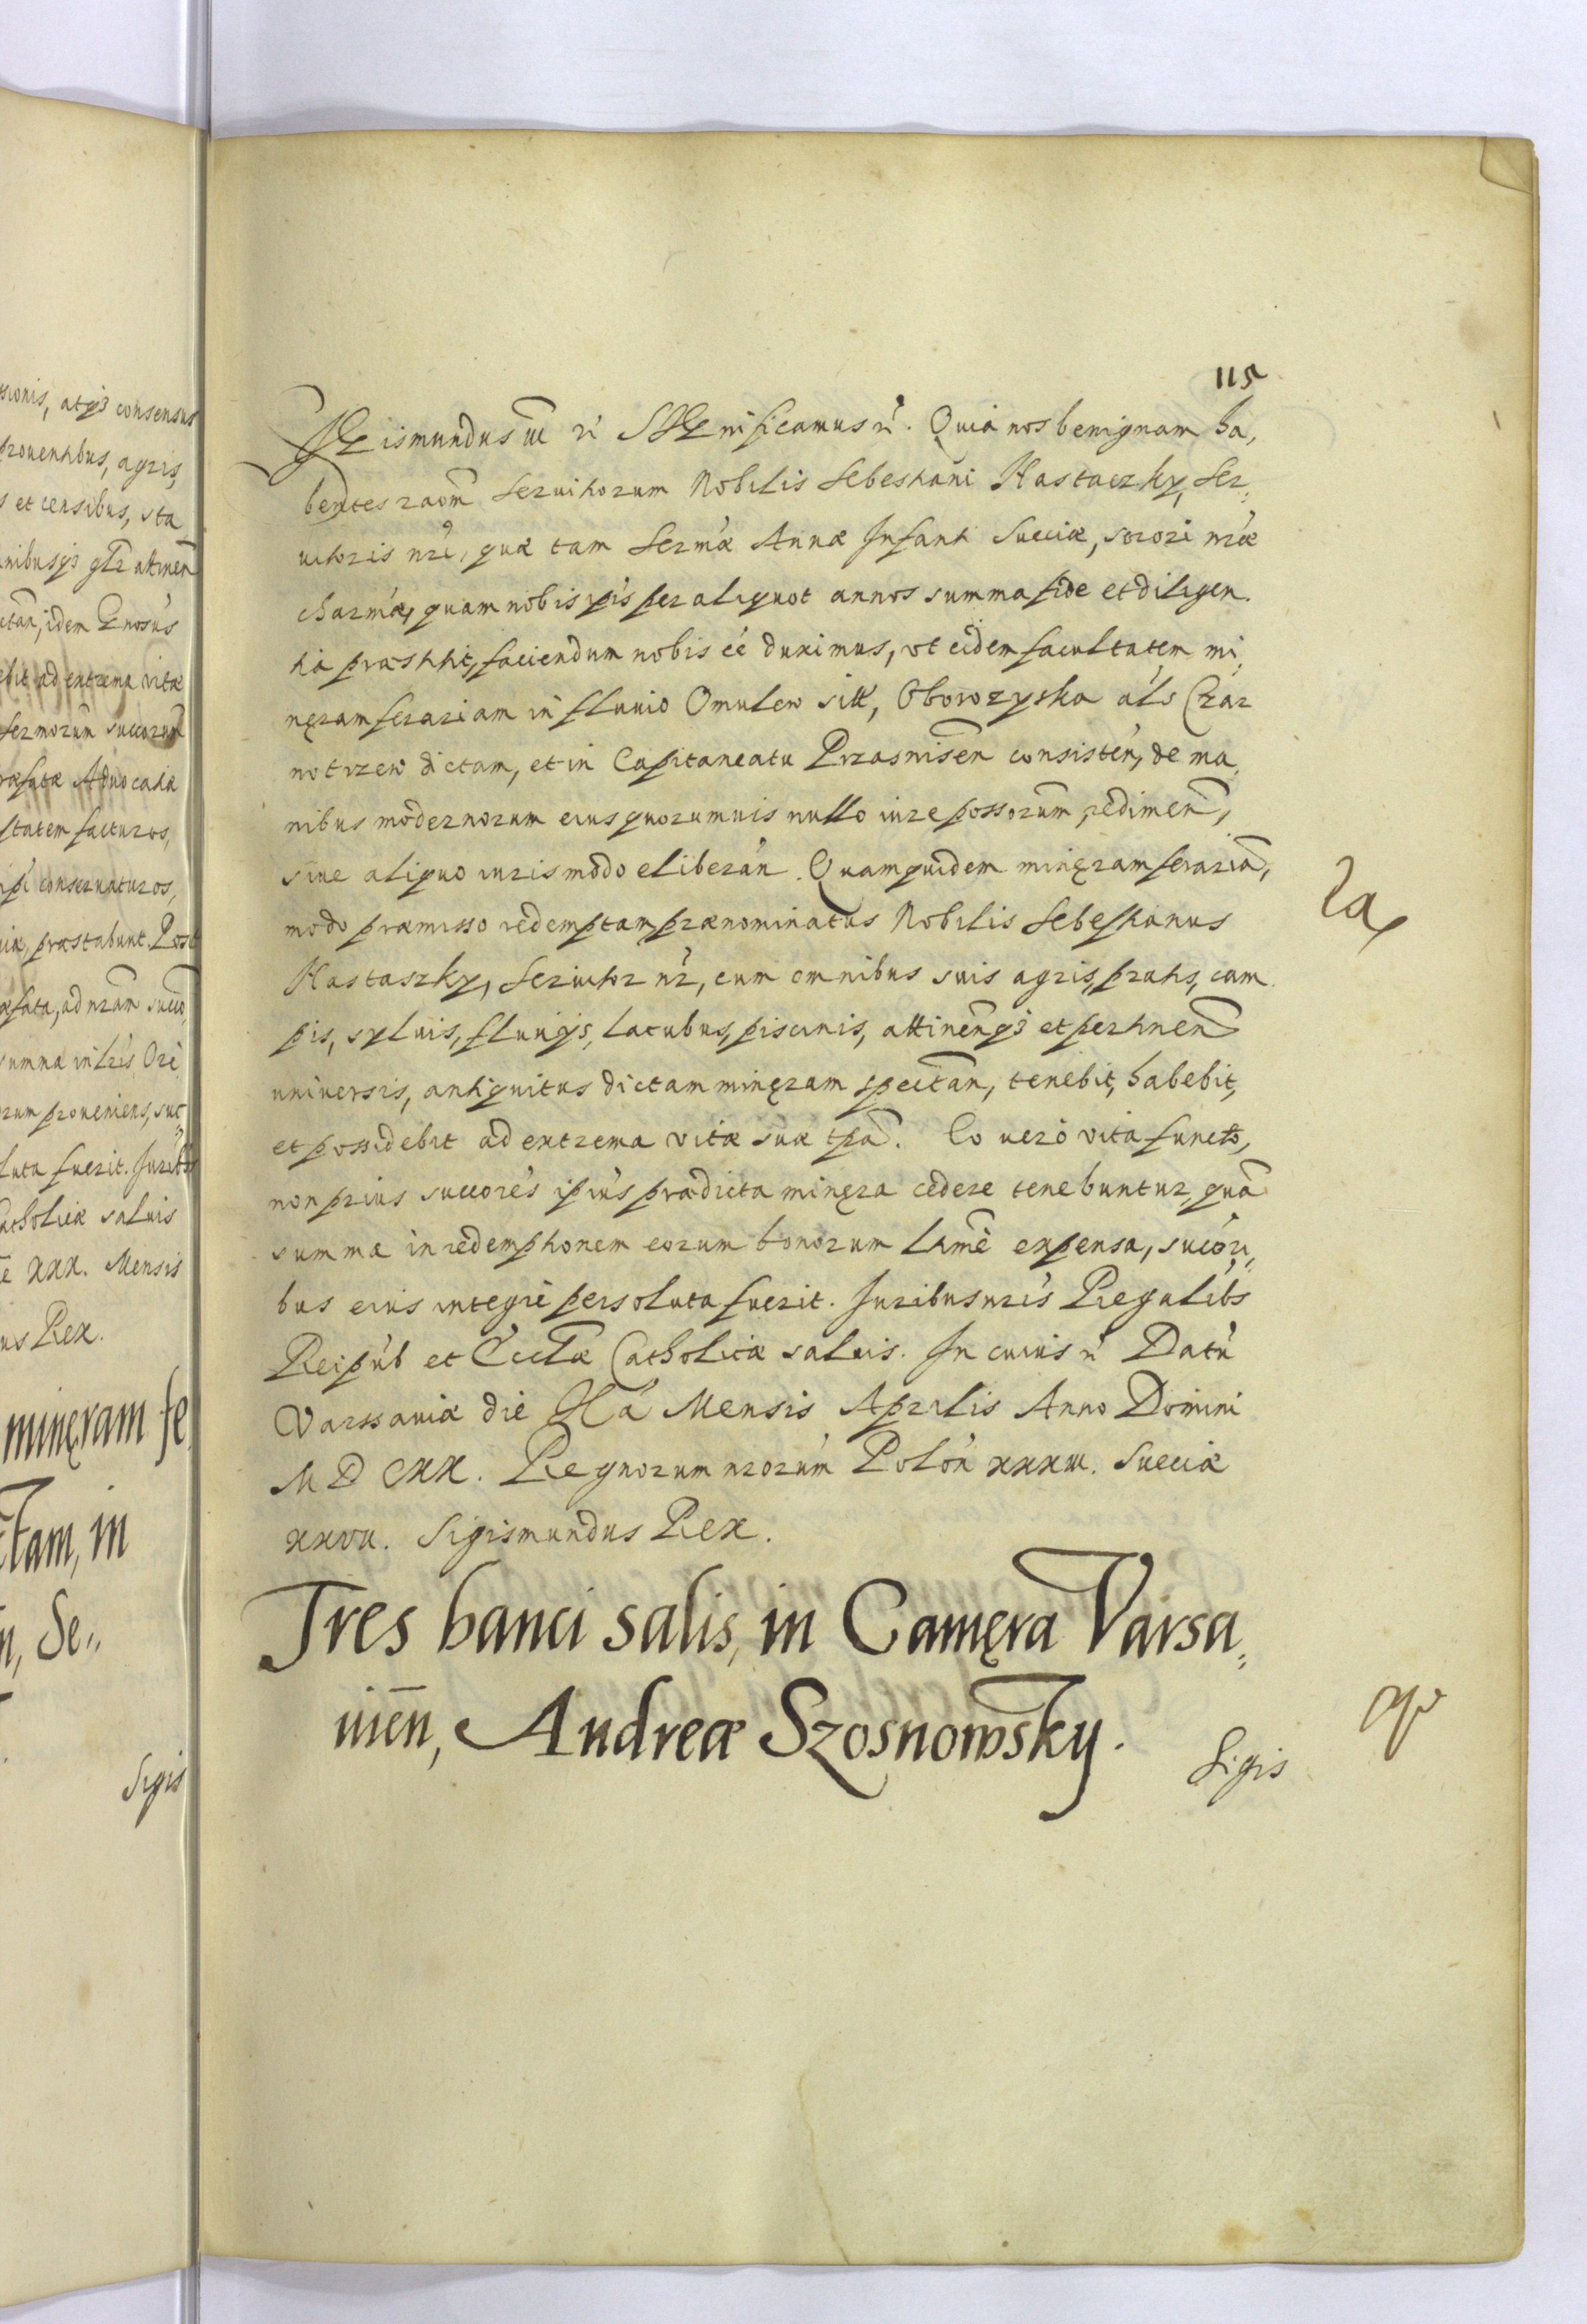 sionis, atqȝ consensus
prouentibus, agris,
s et censibus, sta
mnibusqȝ glr attinen
ctan, idem Gnosus
ebit ad extrema vitæ
sermorum succorum
ræfatæ Aduocatiæ
statem facturos,
ipi conseruaturos,
uiæ, præstabunt. Post
æfata, ad nram succo
summa in lris Ori
orum proueniens, suc,
luta fuerit. Iuribus
Catholicæ saluis
e xxx. Mensis
us Rex.
minęram fe
ctam, in
n, Se,,
Sigis
115
Sigismundus III ꝛc Significamus ꝛc. Quia nos benignam ha,
bentes raom seruitiorum Nobilis Sebestiani Hastaczky, ser,
uitoris nri, quæ tam Sermæ Annæ Infanti Sueciæ, sorori nræ
charmæ, quam nobis ipis per aliquot annos summa fide et diligen.
tia præstitit, faciendum nobis ee duximus, vt eidem facultatem mi,
nęram ferariam in fluuio Omulew sitt, Oborozyska als Czar
notrzew dictam, et in Capitaneatu Przasnisen consisten, de ma,
nibus modernorum eius quorumuis nullo iure possorum, redimen,
siue aliquo iuris modo eliberan. Quamquidem minęram ferariã,
modo præmisso redemptam prænominatus Nobilis Sebestianus
Hastaszky, Seruitor nr, cum omnibus suis agris, pratis, cam
pis, syluis, fluuijs, lacubus, piscinis, attinenqȝ et pertinen
uniuersis, antiquitus dictam minęram spectan, tenebit, habebit,
et possidebit ad extrema vitæ suæ tpa. Eo uerò vita functo,
non prius succores ipius prædicta minęra cedere tenebuntur, quã
summa in redemptionem eorum bonorum ltme expensa, succori,
bus eius integre persoluta fuerit. Iuribus nris Regalibs
Reipub et Ecclæ Catholicæ saluis. In cuius ꝛc Datu
Varssauiæ die Mensis Aprilis Anno Domini
M D CXX. Regnorum nrorum Polon xxxIII. Sueciæ
xxvII. Sigismundus Rex.
Tres banci salis, in Camęra Varsa,
uien, Andreæ Szosnowsky.
Sigis